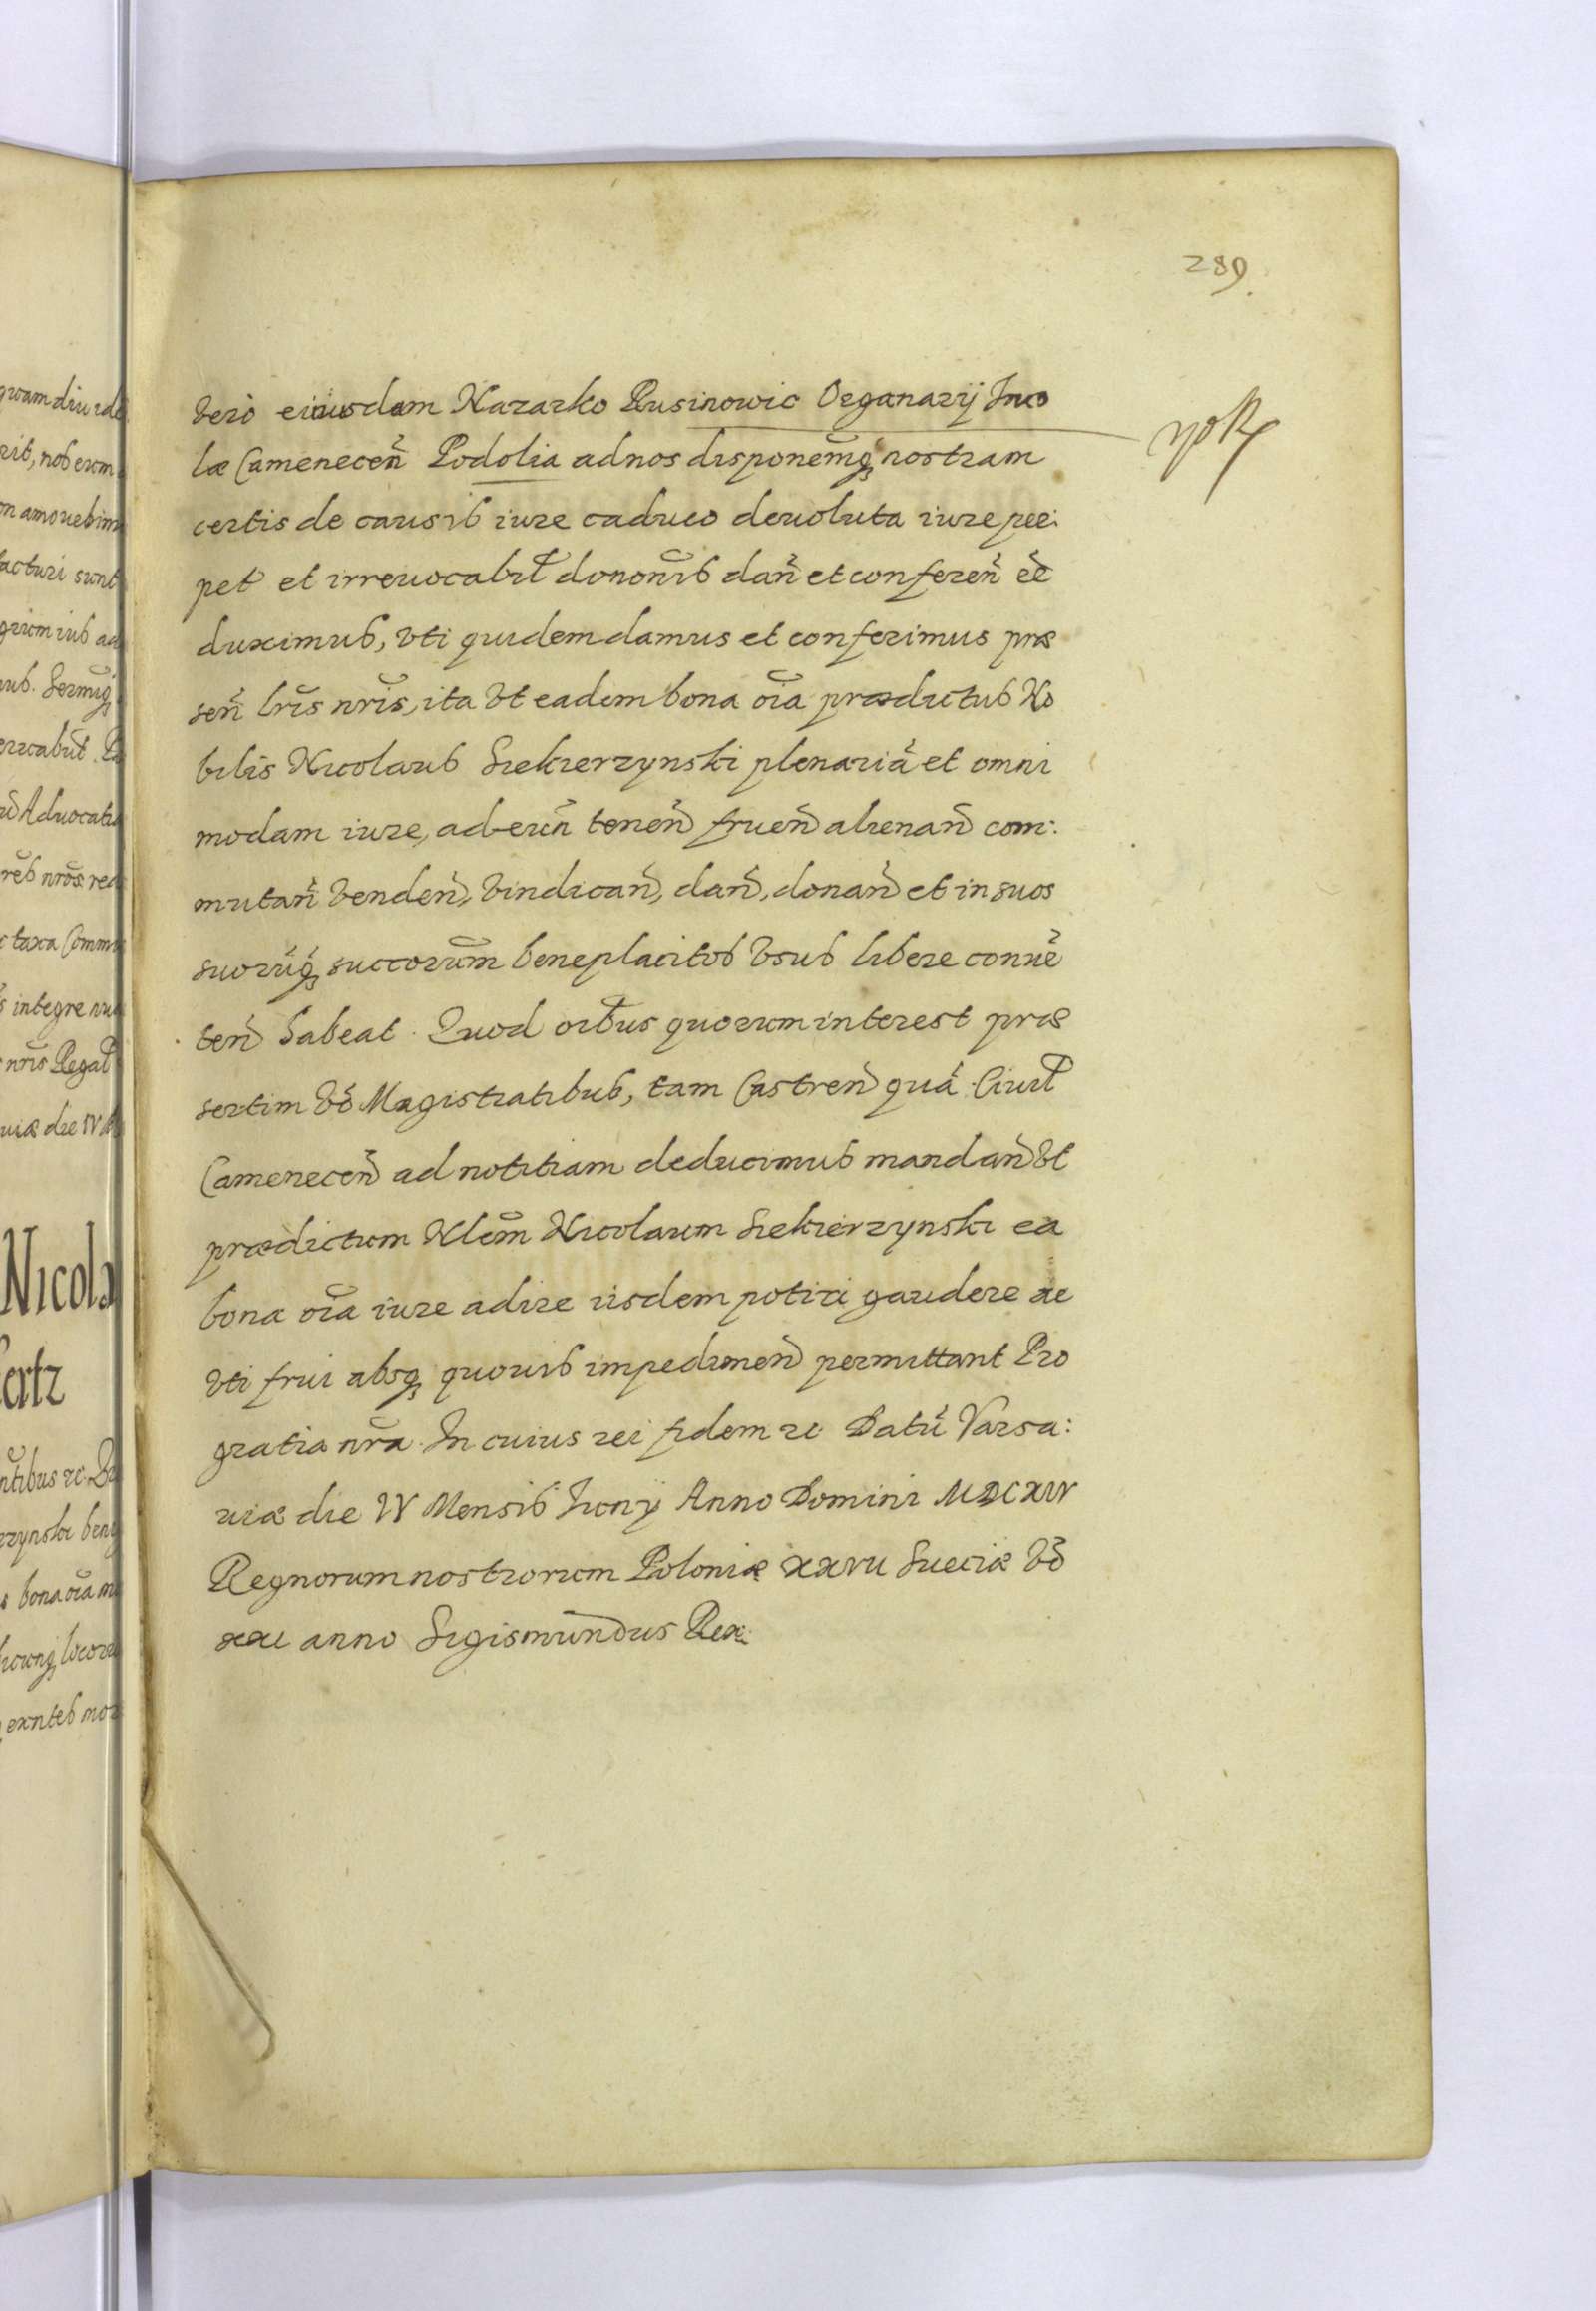 289.
vero eiusdem Nazarko Rusinowic Organarij Inco
læ Camenecen̄ Podolia ad nos disponem̄q nostram
certis de causis iure caduco deuoluta iure per:
pet et irreuocabil donon̄is dan̄ et conferen̄ ēē
duximus, vti quidem damus et conferimus præ
sen̄ lr̄is nr̄is, ita vt eadem bona oīa prædictus No
bilis Nicolaus Siekierzynski plenariā et omni
modam iure, ad eun̄ tenen̄ fruen̄ alienan̄ com:
mutan̄ venden̄, vindican̄, dan̄, donan̄ et in suos
suorūq succorum̄ beneplacitos vsus libere conuē
ten̄ habeat. Quod oib̄us quorum interest præ
sertim vō Magistratibus, tam Castren̄ quā Ciuil
Camenecen̄ ad notitiam deducimus mandan̄ vt
prædictum Nlem̄ Nicolaum Siekierzynski ea
bona oīa iure adire iisdem potiri gaudere ac
vti frui absq quouis impedimen̄ permittant Pro
gratia nr̄a. In cuius rei fidem rc Datū Varsa:
uiæ die IV Mensis Iunij Anno Domini MDCXIV
Regnorum nostrorum Poloniæ XXVII Sueciæ vō
XXI anno Sigismundus Rex.
quam diu
rit, nob
on amouebim
facturi sunt
Aduocati
taxa Comm
integre
nr̄is Regal
uiæ die IV
Nicola
ertz
bona oīa